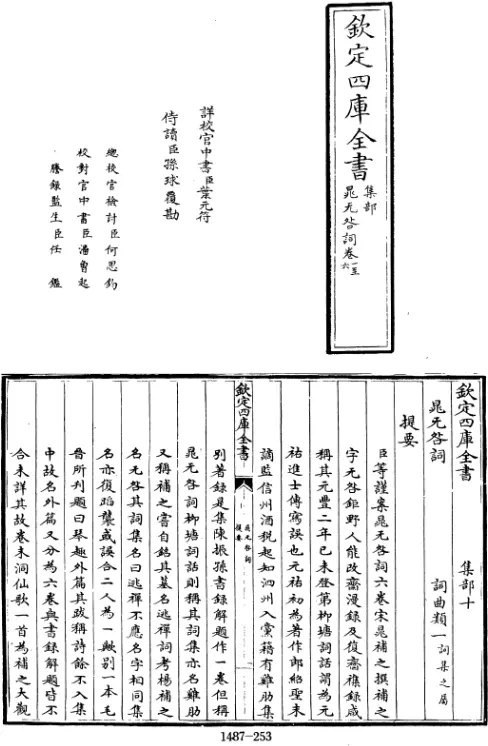 欽定四庫全書
集部
晁无咎詞卷一至六
詳校官中書臣葉元符
侍讀臣孫球覆勘
總校官檢討臣何思鈞
校對官中書臣潘曾起
謄錄監生臣任鑑
欽定四庫全書 集部十
晁无咎詞 詞曲類一詞集之屬
提要
臣等謹案晁无咎詞六卷宋晁補之撰補之
字无咎鉅野人能改齋漫録及復齋襍録咸
稱其元豐二年已未登第栁塘詞話謂為元
祐進士傳寫誤也元祐初為著作郎紹聖末
謫監信州酒税起知泗州入黨籍有雞肋集
欽定四庫全書
晁无咎詞
提要
別著録是集陳振孫書録解題作一卷但稱
晁无咎詞栁塘詞話則稱其詞集亦名雞肋
又稱補之嘗自銘其墓名逃禪詞考楊補之
名无咎其詞集名曰逃禪不應名字相同集
名亦復蹈襲或誤合二人為一歟别一本毛
晉所刋題曰琴趣外篇其跋稱詩餘不入集
中故名外篇又分為六卷與書録解題皆不
合未詳其故卷末洞仙歌一首為補之大觀
1487-253